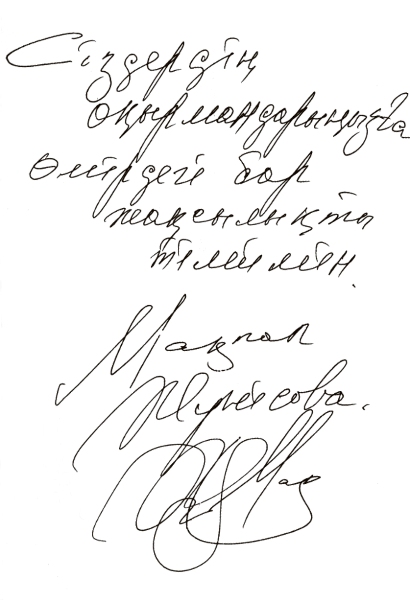 Сіздердің
оқырмандарыңызға
өмірдегі бар
жақсылықты
тілеймін.
Мақпал
Жүнісова.